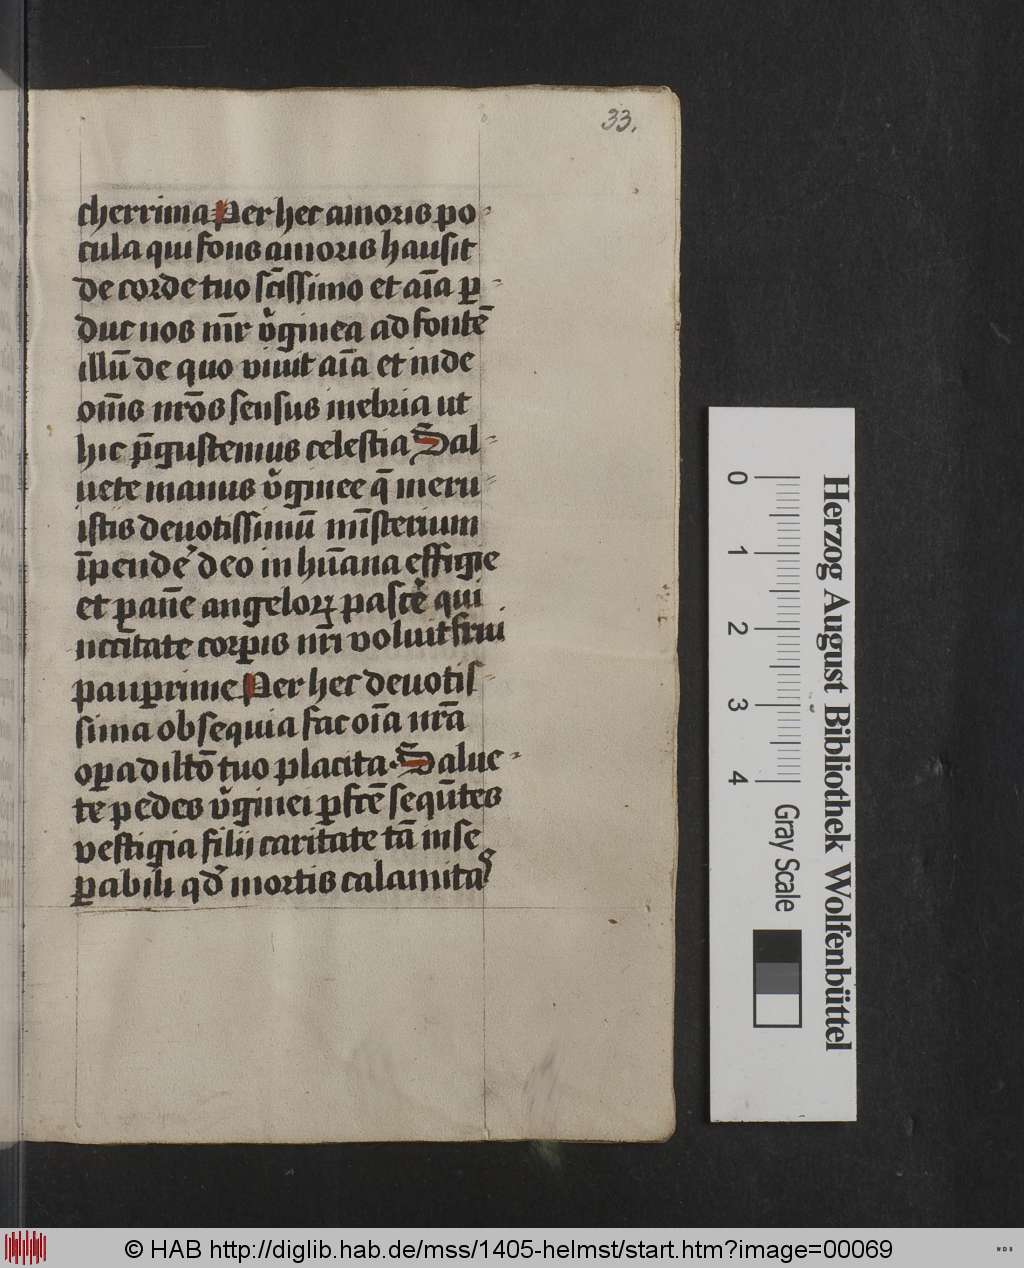 33.
cherrima Per hec amoris po-
cula qui fons amoris hausit
de corde tuo sc̄issimo et aīa ꝑ-
duc nos mr̄ v̓ginea ad fontē
illū de quo viuit aīa et inde
om̄s nr̄os sensus inebria ut
hic p̄gustemus celestia Sal-
uete manus v̓ginee q̄ meru-
istis deuotissimū mīsterium
īpende̓ deo in hūana effigie
et ꝑ aūe angeloꝝ pasce̓ qui
nccītate corꝑis nr̄i voluit frui
pauꝑrime Per hec deuotis-
sima obsequia fac oīa nr̄a
oꝑa dilc̄o tuo placita. Salue-
te pedes v̓ginei ꝑfc̄e sequn̄tes
vestigia filij caritate tā inse
ꝑabili qd̓ mortis calamitaꝰ
Herzog August Bibliothek Wolfenbüttel
0 1 2 3 4 Gray Scale
© HAB http://diglib.hab.de/mss/1405-helmst/start.htm?image=00069